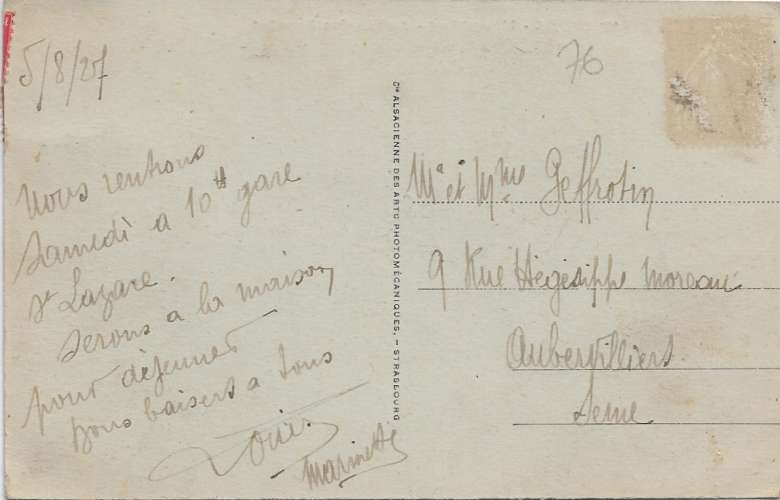 5/8/27
Nous rentrons
Samedi a 10 H gare
St Lazare.
Serons a la maison
pour déjeuner
Bons baisers a tous
Louis
Marinette
76
Cie ALSACIENNE DES ARTS PHOTOMÉCANIQUES. — STRASBOURG
Mr et Mme Geffrotin
9 Rue Hégésippe Moreau
Aubervilliers
Seine